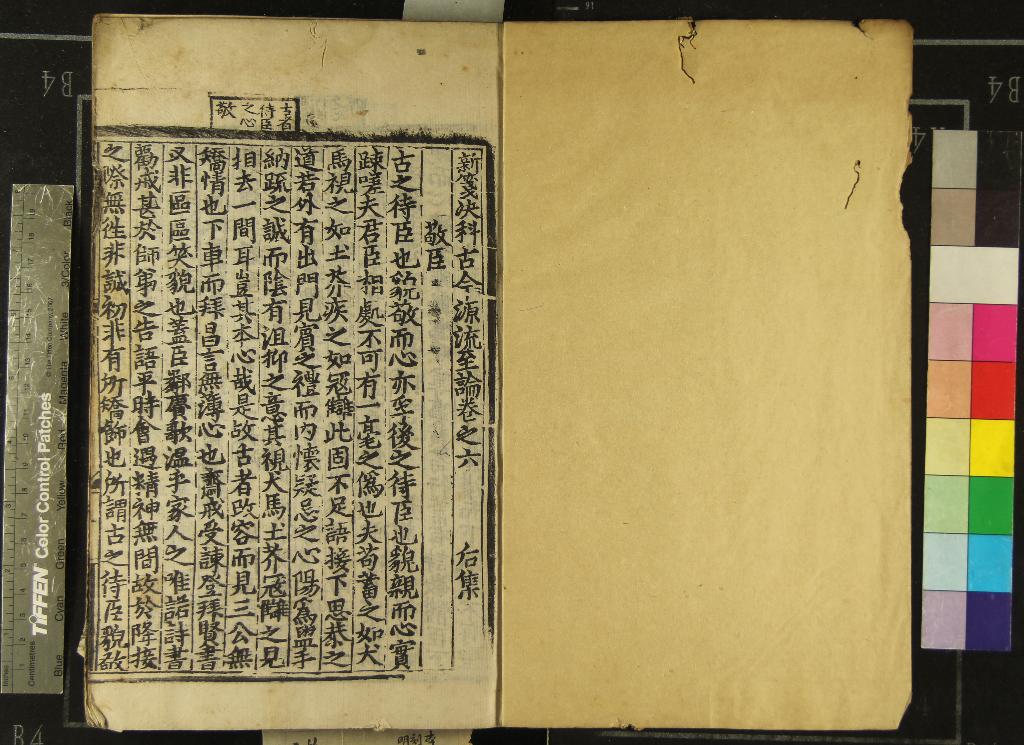 新箋决科古今源流至論卷之六　后集
敬臣
古之待臣也貌敬而心亦至後之待臣也貌親而心實
踈嗟夫君臣相處不可有一毫之僞也夫苟蓄之如犬
馬視之如土芥疾之如冦讎此固不足語接下思恭之
道若外有出門見賔之禮而内懷疑忌之心陽爲盟手
納䟽之誠而陰有沮抑之意其視犬馬土芥冦讎之見
相去一間耳豈其本心哉是故古者改容而見三公無
矯情也下車而拜昌言無薄心也齋戒受諫登拜賢書
又非區區笑貌也蓋臣鄰賡歌温乎家人之唯諾詩書
勸戒甚於師第之告語平時會遇精神無間故於降接
之際無徃非誠初非有所矯飾也所謂古之待臣貌敬
古者
待臣
之心
敬
TIFFEN Color Control Patches
Centimetres
Inches
Blue
Cyan
Green
Yellow
Red
Magenta
White
3/Color
Black
B4
B4
B4
明刻本